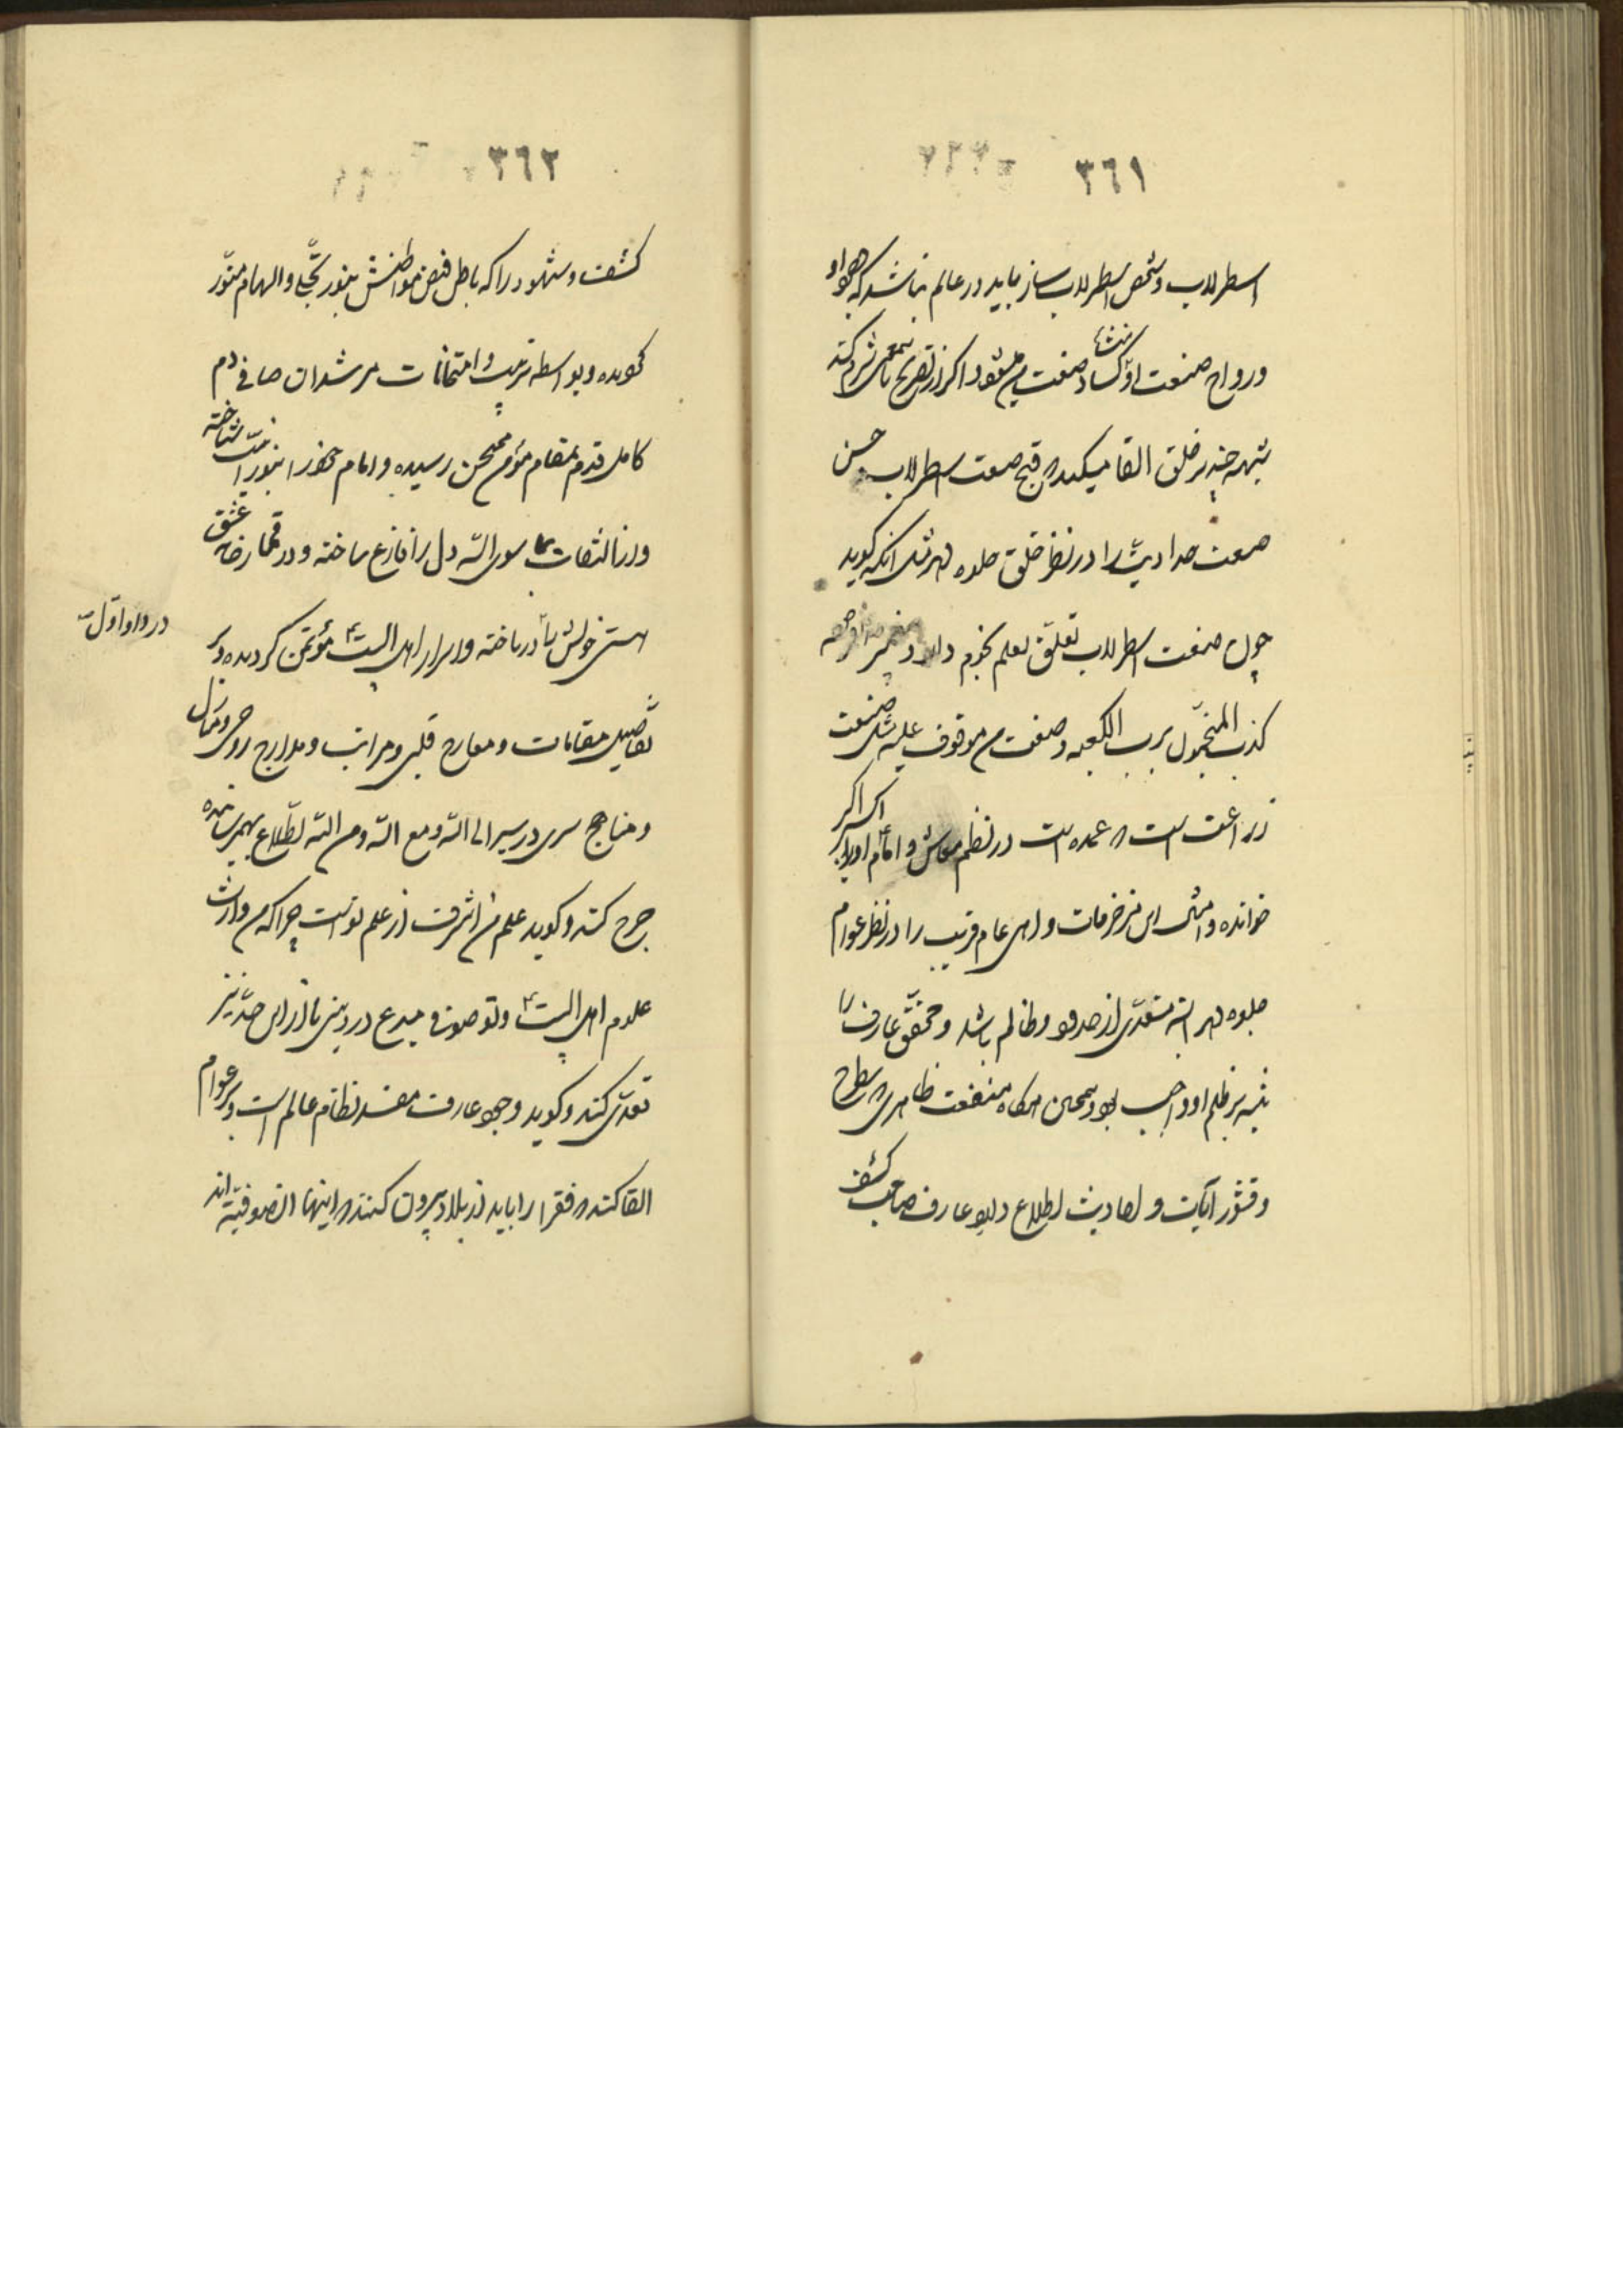 ٣٦١
اسطرلاب و شخص اسطرلاب ساز باید در عالم نباشد که وجود او
و رواج صنعت او منشاء کساد صنعت من میشود و اگر از تصریح باین معنی شرم کند
شبهه چند بر خلق القا میکند که قبح صنعت اسطرلاب و حسن
صنعت حدادیش را در نظر خلق جلوه دهد مثل آنکه گوید
چون صنعت اسطرلاب تعلق بعلم نجوم دارد و
کذب المنجمون برب الکعبه و صنعت من موقوف علیه مثل صنعت
زراعت است که عمده است در نظم معاش و امام او را اکبر
خوانده و امثال این مزخرفات و اهی عام فریب را در نظر عوام
جلوه دهد البته متعدی از حد خود و ظالم باشد و محقق عارف را
تنبیه بر ظلم او واجب بود و همچنین هرگاه منفعت ظاهری که بر سطوح
و قشور آیات و احادیث اطلاع دارد عارف صاحب کشف
٣٦٢
کشف و شهود را که باطن فیض مواطنش بنور تجلی و الهام منور
گردیده و بواسطه تربیت و امتحانات مرشدان صافی دم
کامل قدم بمقام مؤمن ممتحن رسیده و امام خود را بنورانیت شناخته
و از التفات بما سوی الله دل را فارغ ساخته و در قمارخانه عشق
هستی خویش را درباخته و اسرار اهل البیت ع مؤتمن گردیده و بر
در و او اول
تفاصیل مقامات و معارج قلبی و مراتب و مدارج روحی و منازل
و مناهج سری در سیر الی الله و مع الله و من الله اطلاع بهم رسانیده
جرح کند و گوید علم من اشرفست از علم تو است چرا که من وارث
علوم اهل البیت ع و تو صوفی مبدع در دینی تا از این حد نیز
تعدی کند و گوید وجود عارف مفسد نظام عالم است و بر عوام
القا کند که فقرا را باید از بلاد بیرون کنند که اینها الصوفیه اند